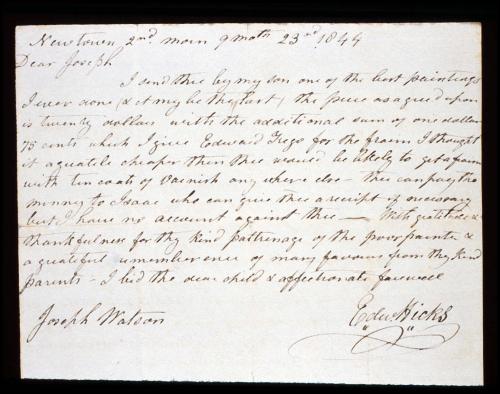 Newtown 2nd morn 9 moth 23rd 1844
Dear Joseph
I send thee by my son one of the best paintings
I ever done (& it my be the last) the price as agreed upon
is twenty dollars with the additional sum of one dollar
75 cents which I give Edward Trego for the fraim I thought
it a quatile cheaper than thee would be likely to get a fraim
with ten coats of varnish any where else — thee can pay the
money to Isaac who can give thee a receipt if necessary
but I have no account against thee — With gratitude &
thankfulness for thy kind pattrenage of the poor painter &
a grateful rememberence of many favours from thy kind
parents — I bid the dear child & affectionate farewell
Joseph Watson
Edw. Hicks